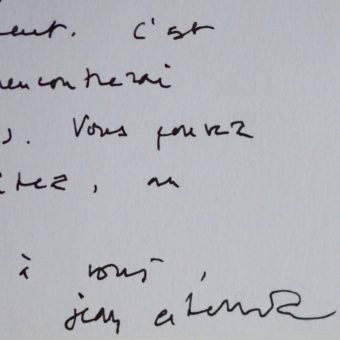 c'est
rencontrerai
s. Vous pouvez
, au
à vous,
jean